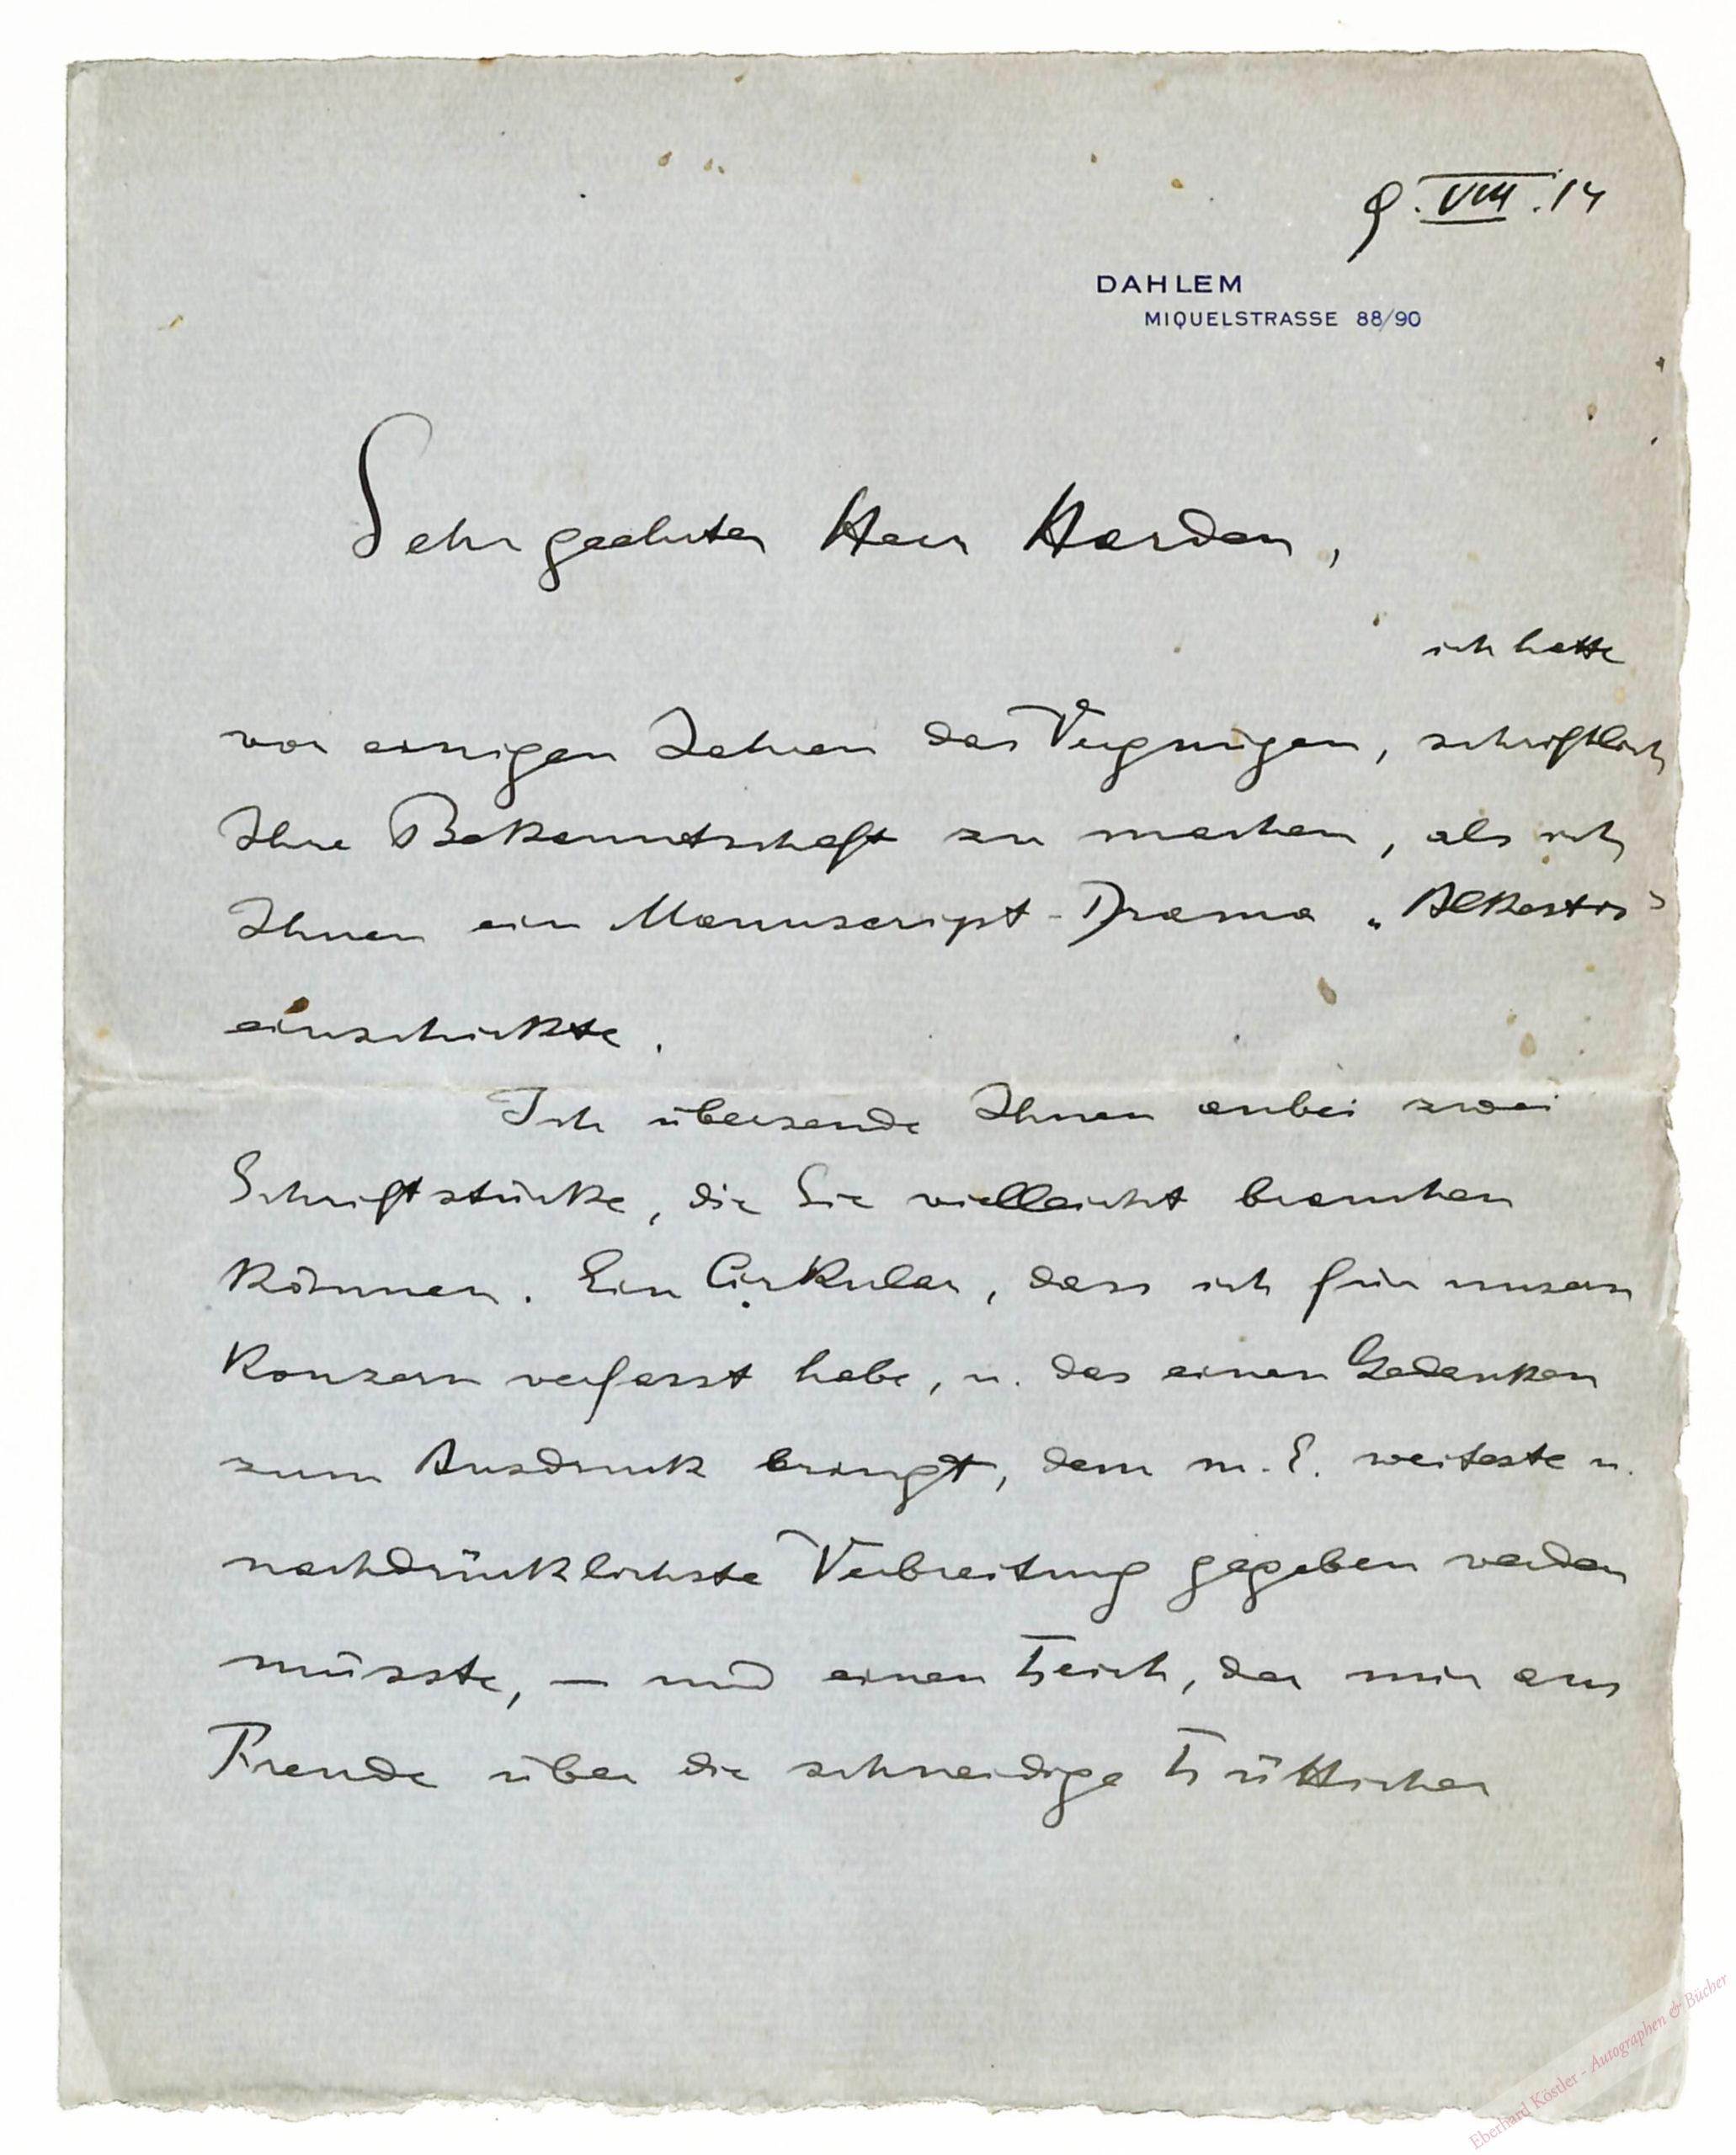 9.VIII.14
DAHLEM
MIQUELSTRASSE 88/90
Sehr geehrter Herr Harden,
ich hatte
vor einigen Jahren das Vergnügen, schriftlich
Ihre Bekanntschaft zu machen, als ich
Ihnen ein Manuscript-Drama „Alkestis"
einschickte.
Ich übersende Ihnen anbei zwei
Schriftstücke, die Sie vielleicht brauchen
können. Ein Cirkular, dass ich für unsern
Konzern verfasst habe, u. das einen Gedanken
zum Ausdruck bringt, dem m. E. weiteste u.
nachdrücklichste Verbreitung gegeben werden
müsste, — und einen Leich, der mir aus
Freude über die schneidige Lütticher
Eberhard Köstler - Autographen & Bücher